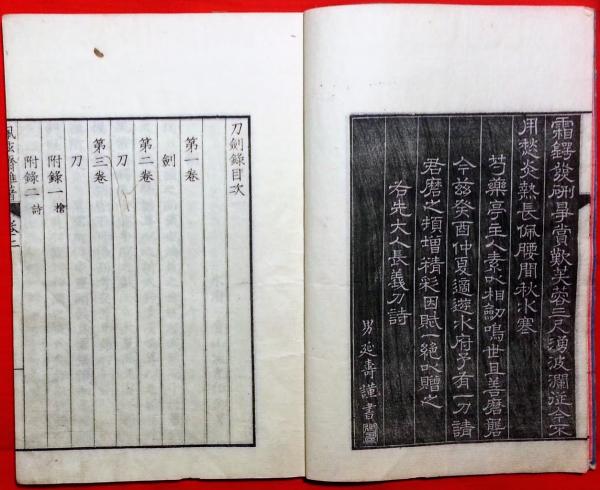 霜鍔發硎賞歎芙蓉三尺湧波瀾從今不
用愁炎熱長佩腰間秋水寒
芍藥亭主人素以相劔鳴世且善磨礱
今茲癸酉仲夏適遊水府予有一刀請
君磨之頓增精彩因賦一絶以贈之
右先大人長義刀詩
男延壽謹書
刀劍錄目次
第一卷
劍
第二卷
刀
第三卷
刀
附錄一 槍
附錄二 詩
佩弦齋雜著 卷二